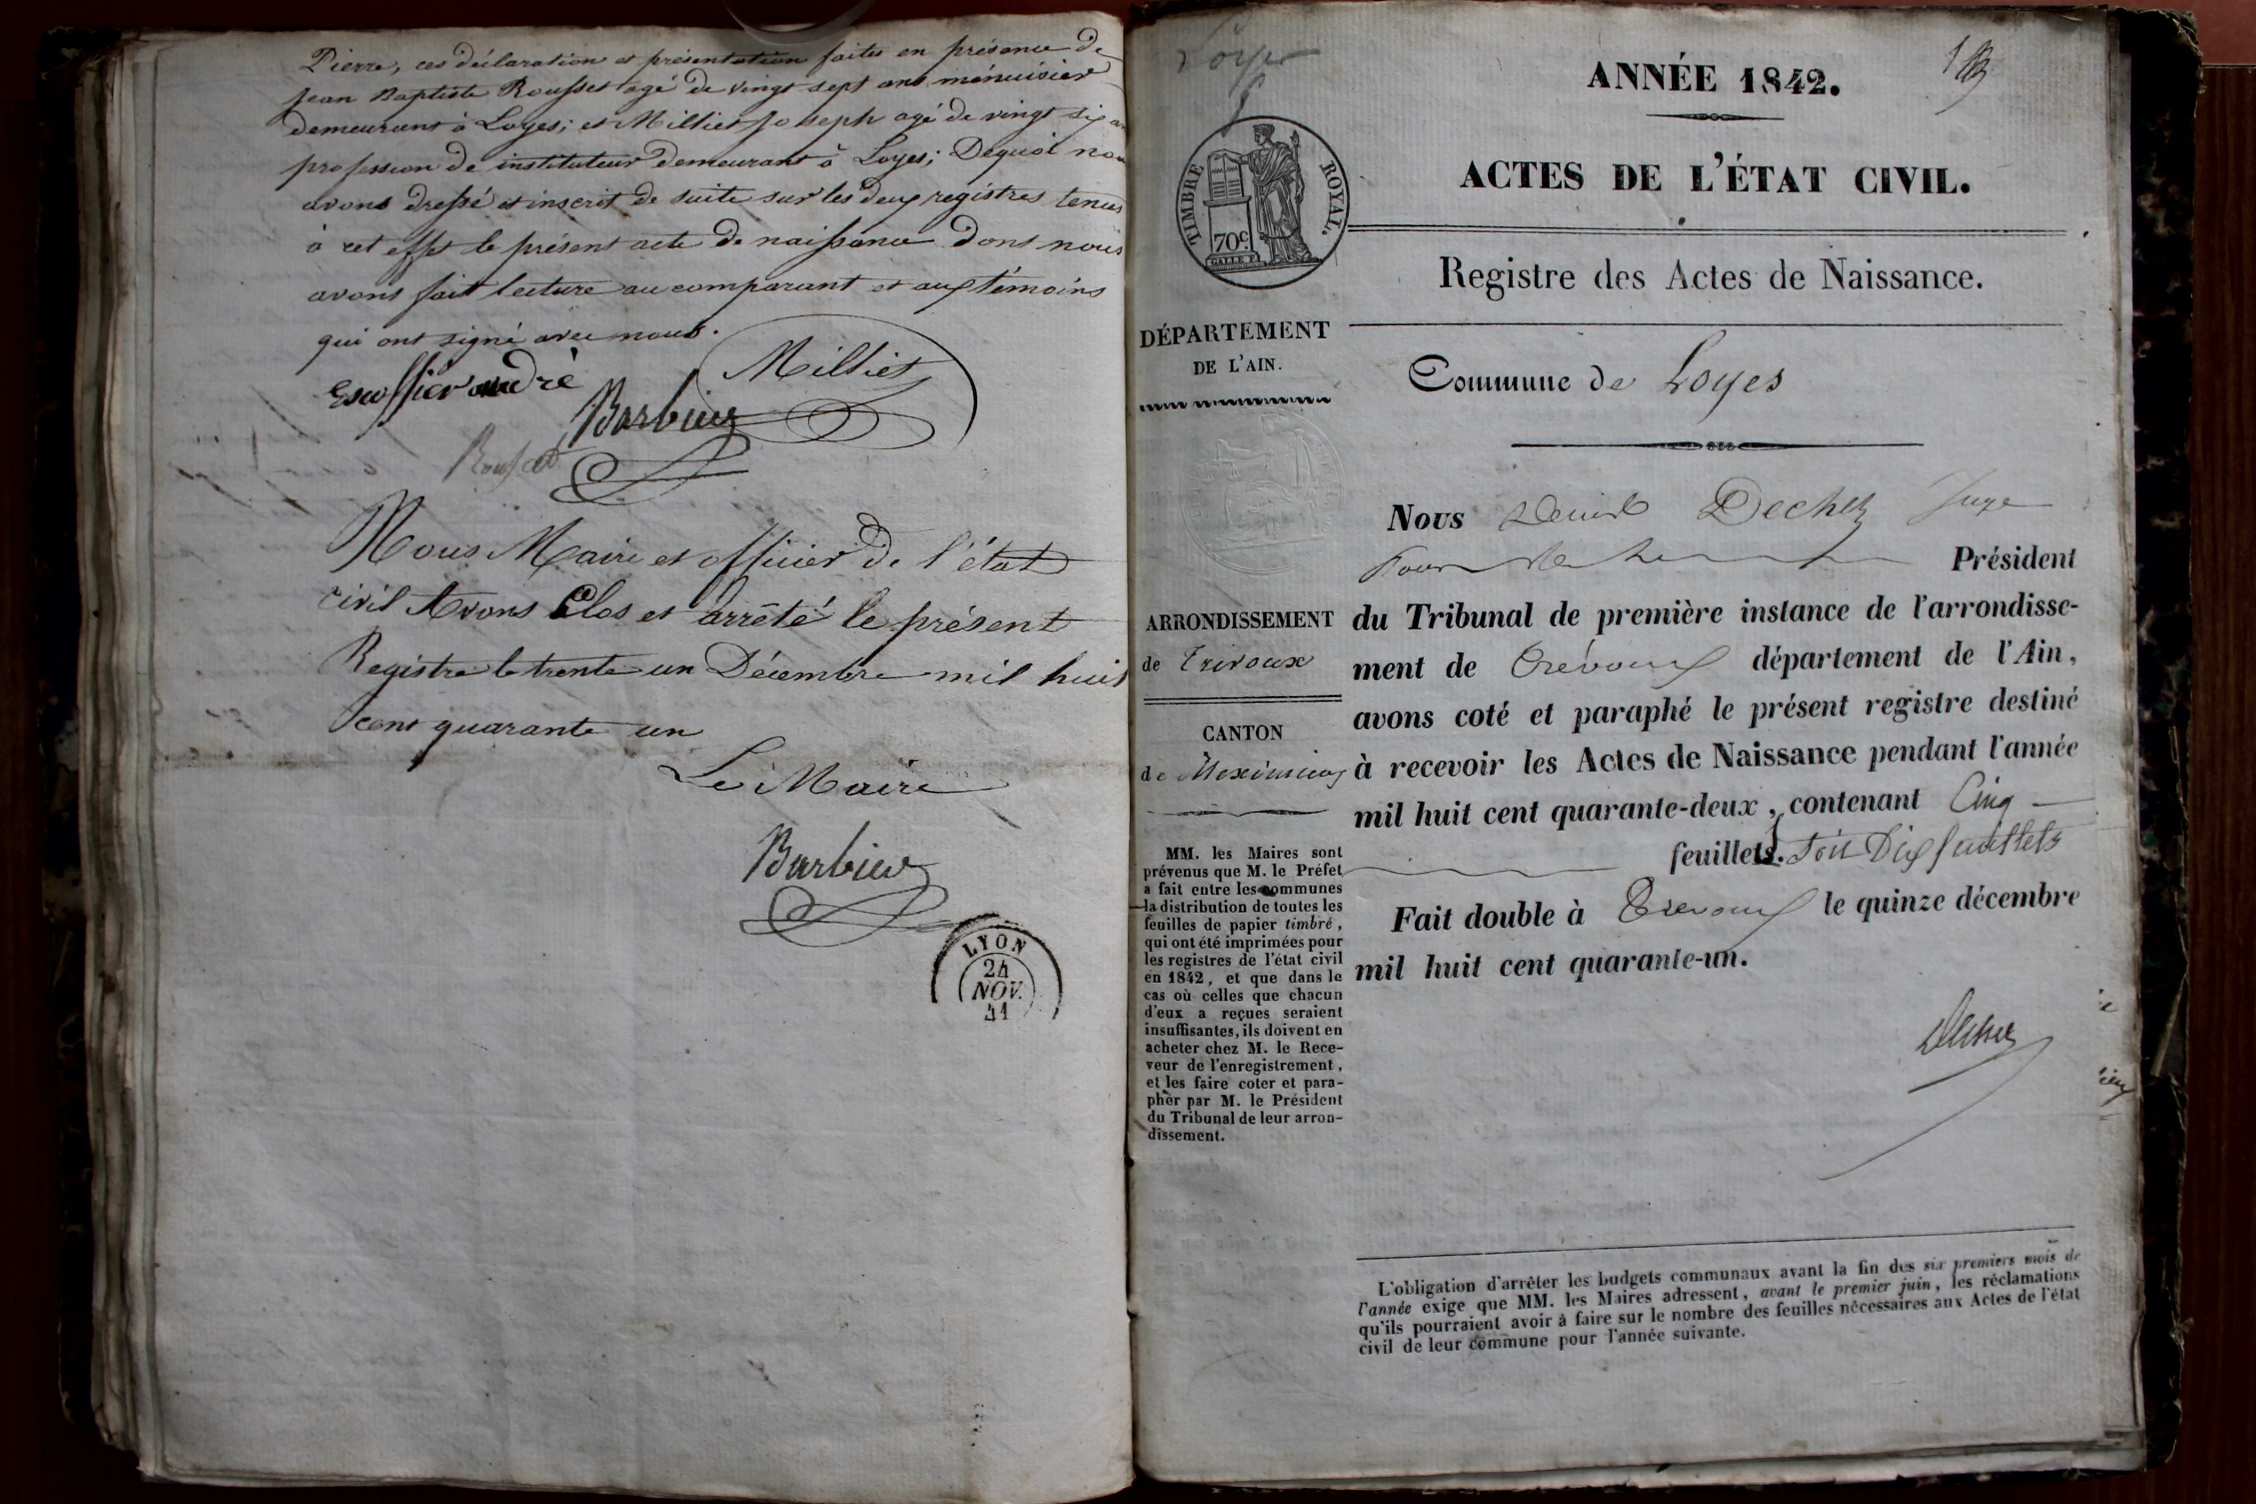 Pierre, ces déclaration et présentation faites en présence de
Jean Baptiste Rousset agé de vingt sept ans ménuisier
demeurant à Loyes; et Milliet Joseph agé de vingt six
profession de instituteur demeurant à Loyes; Dequoi
avons dressé et inscrit de suite sur les deux registres tenus
à cet effet le présent acte de naissance dont nous
avons fait lecture au comparant et aux témoins
qui ont signé avec nous.
Milliet
Escoffier andré
Barbier
Rousset
Nous Maire et officier de l'état
civil Avons Clos et arrêté le présent
Registre le trente un Décembre mil huit
cent quarante un
Le Maire
Barbier
LYON
24
NOV.
41
Loyes
ANNÉE 1842.
ACTES DE L'ÉTAT CIVIL.
TIMBRE ROYAL.
70c.
Registre des Actes de Naissance.
DÉPARTEMENT
DE L'AIN.
Commune de Loyes
Nous Juge
Pour Président
ARRONDISSEMENT
de Trévoux
du Tribunal de première instance de l'arrondisse-
ment de Trévoux département de l'Ain,
avons coté et paraphé le présent registre destiné
CANTON
de Meximieux
à recevoir les Actes de Naissance pendant l'année
mil huit cent quarante-deux, contenant Cinq
feuillets. soit Dix feuillets
Fait double à Trevoux le quinze décembre
mil huit cent quarante-un.
MM. les Maires sont
prévenus que M. le Préfet
a fait entre les communes
la distribution de toutes les
feuilles de papier timbré,
qui ont été imprimées pour
les registres de l'état civil
en 1842, et que dans le
cas où celles que chacun
d'eux a reçues seraient
insuffisantes, ils doivent en
acheter chez M. le Rece-
veur de l'enregistrement,
et les faire coter et para-
pher par M. le Président
du Tribunal de leur arron-
dissement.
L'obligation d'arrêter les budgets communaux avant la fin des six premiers mois de
l'année exige que MM. les Maires adressent, avant le premier juin, les réclamations
qu'ils pourraient avoir à faire sur le nombre des feuilles nécessaires aux Actes de l'état
civil de leur commune pour l'année suivante.